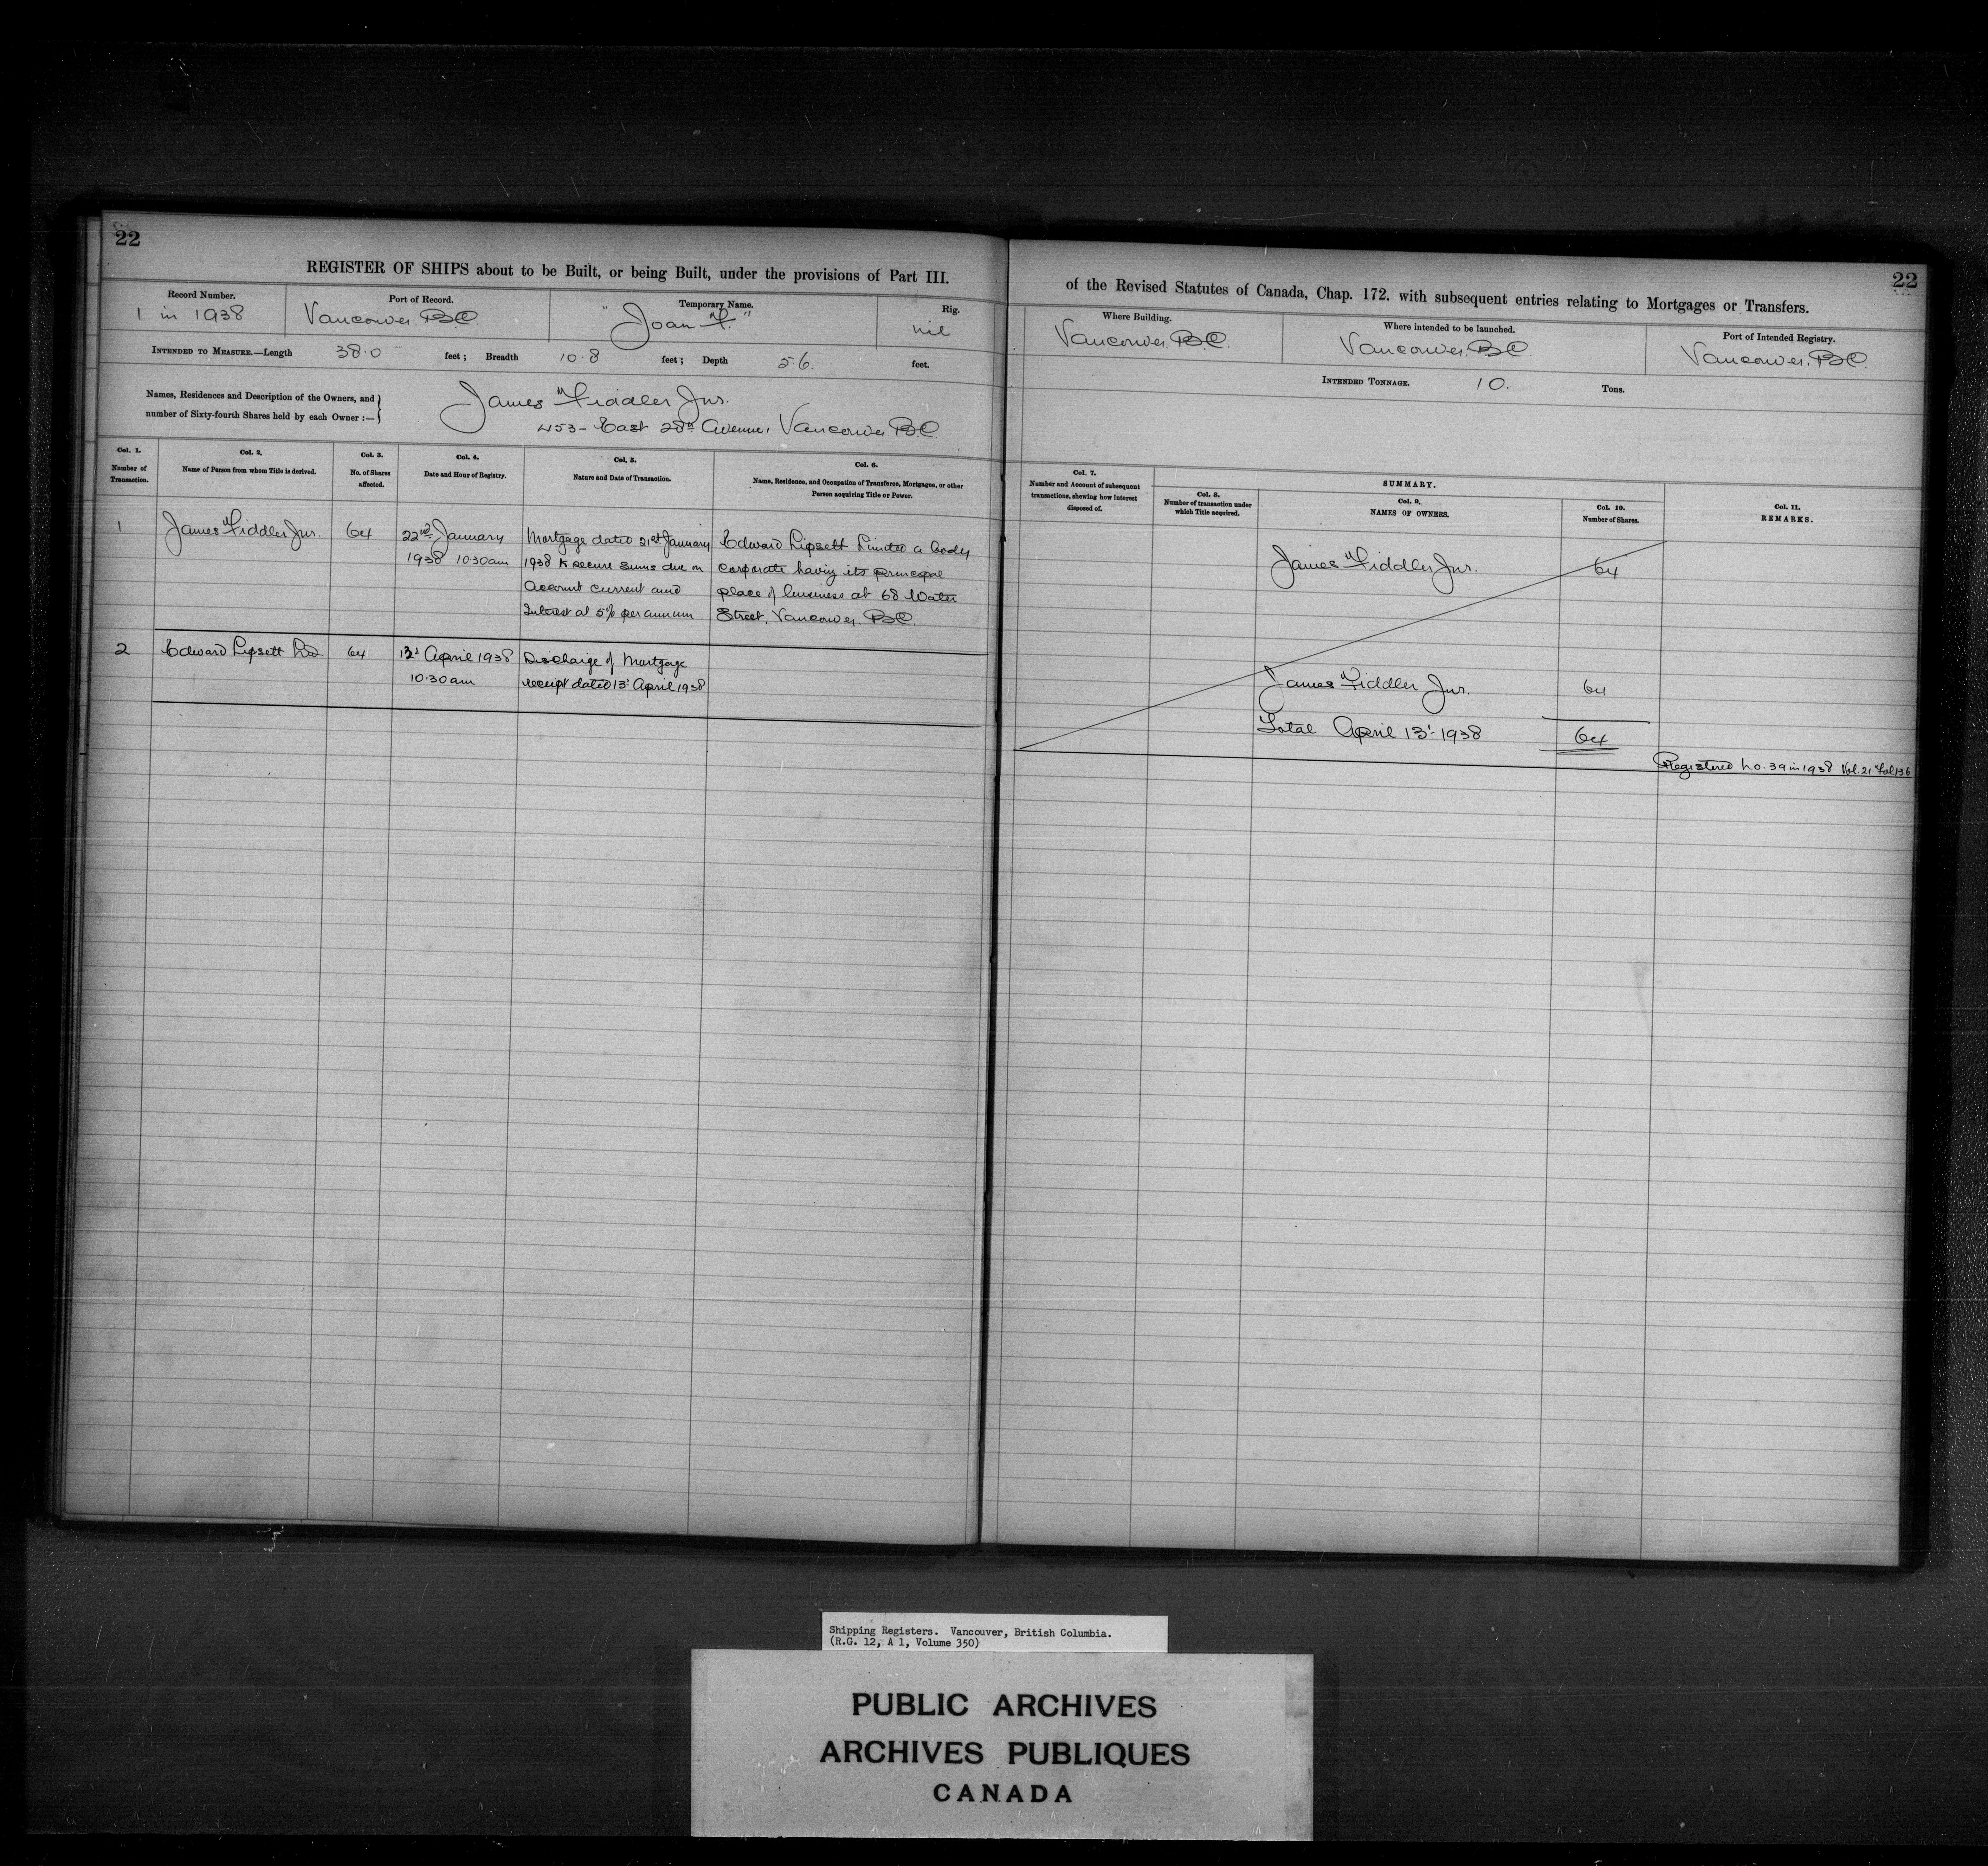 22
REGISTER OF SHIPS about to be Built, or being Built, under the provisions of Part III.
Record Number.
1 in 1938
Port of Record.
Vancouver. B.C.
Temporary Name.
"Joan F."
Rig.
nil
INTENDED TO MEASURE.—Length 38.0 feet; Breadth 10.8 feet; Depth 5.6. feet.
Names, Residences and Description of the Owners, and
number of Sixty-fourth Shares held by each Owner :—
James Fiddler Jnr.
453- East 28th Avenue, Vancouver B.C.
Col. 1.
Number of
Transaction.
Col. 2.
Name of Person from whom Title is derived.
Col. 3.
No. of Shares
affected.
Col. 4.
Date and Hour of Registry.
Col. 5.
Nature and Date of Transaction.
Col. 6.
Name, Residence, and Occupation of Transferee, Mortgagee, or other
Person acquiring Title or Power.
1
James Fiddler Jnr.
64
22nd January
1938 10.30am
Mortgage dated 21st January
1938 to secure sums due on
Account current and
Interest at 5% per annum
Edward Lipsett Limited a body
corporate having its principal
place of business at 68 Water
Street, Vancouver. B.C.
2
Edward Lipsett Ltd
64
April 1938
10.30am
Discharge of Mortgage
receipt dated 13' April 1938
22
of the Revised Statutes of Canada, Chap. 172. with subsequent entries relating to Mortgages or Transfers.
Where Building.
Vancouver. B.C.
Where intended to be launched.
Vancouver. B.C.
Port of Intended Registry.
Vancouver. B.C.
INTENDED TONNAGE. 10. Tons.
Col. 7.
Number and Account of subsequent
transactions, shewing how interest
disposed of.
SUMMARY.
Col. 8.
Number of transaction under
which Title acquired.
Col. 9.
NAMES OF OWNERS.
Col. 10.
Number of Shares.
Col. 11.
REMARKS.
James Fiddler Jnr. 64
James Fiddler Jnr. 64
Total April 13'-1938 64
Registered No. 39 in 1938 Vol. 21 Fol 136
Shipping Registers. Vancouver, British Columbia.
(R.G. 12, A 1, Volume 350)
PUBLIC ARCHIVES
ARCHIVES PUBLIQUES
CANADA